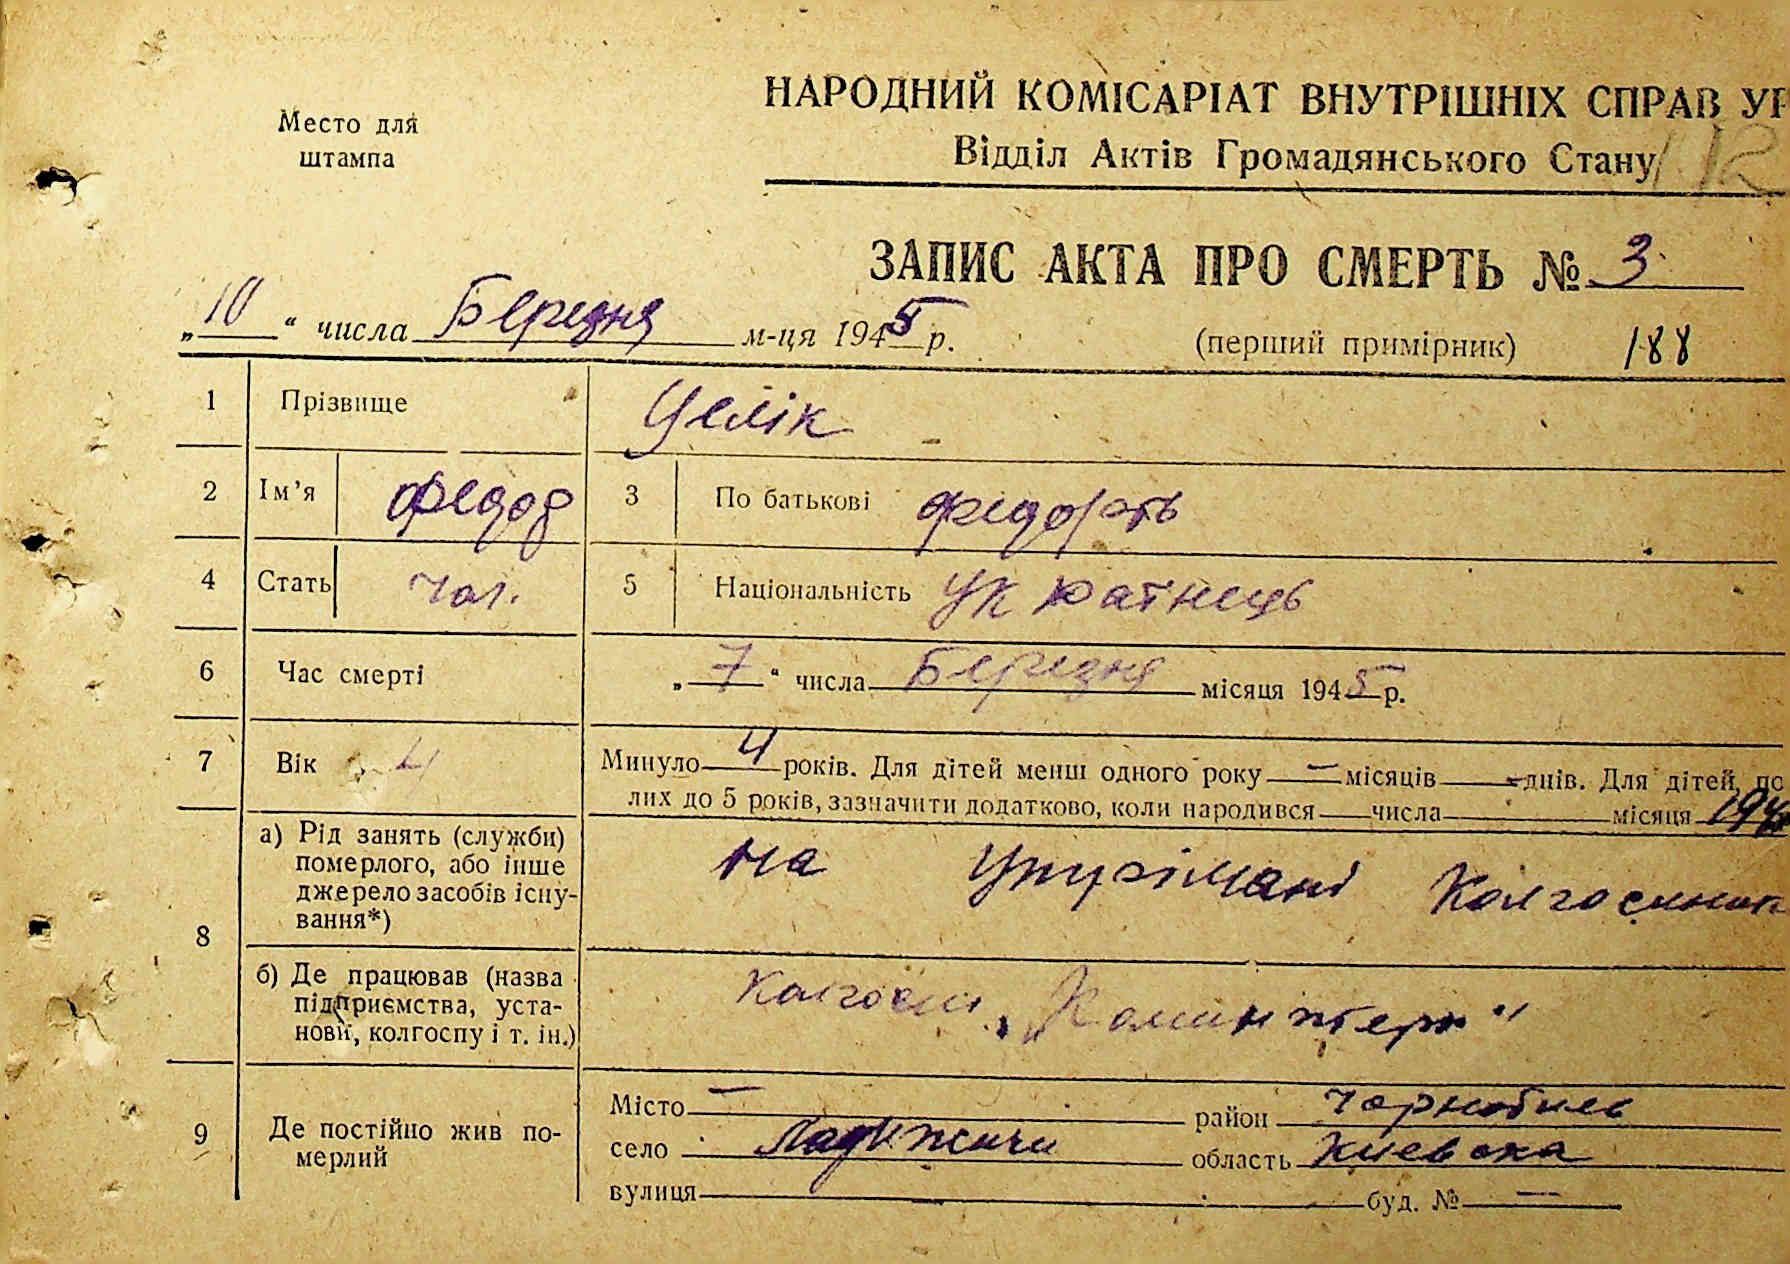 Место для
штампа
НАРОДНИЙ КОМІСАРІАТ ВНУТРІШНІХ СПРАВ УР
Відділ Актів Громадянського Стану
112
ЗАПИС АКТА ПРО СМЕРТЬ № 3
„10“ числа Березня м-ця 1945 р.
(перший примірник) 188
1 Прізвище Уелік
2 Ім’я Федор 3 По батькові
4 Стать чол. 5 Національність Українець
6 Час смерті „7“ числа Березня місяця 1945 р.
7 Вік 4 Минуло 4 років. Для дітей менш одного року — місяців — днів. Для дітей, по
лих до 5 років, зазначити додатково, коли народився числа місяця 194
8 а) Рід занять (служби)
померлого, або інше
джерело засобів існу-
вання*)
на утрімані Колгоспник
б) Де працював (назва
підприємства, уста-
нови, колгоспу і т. ін.)
Колгосп „Коминтерн“
9 Де постійно жив по-
мерлий
Місто — район Чорнобиль
село Ладижичи область Киевска
вулиця буд. № —